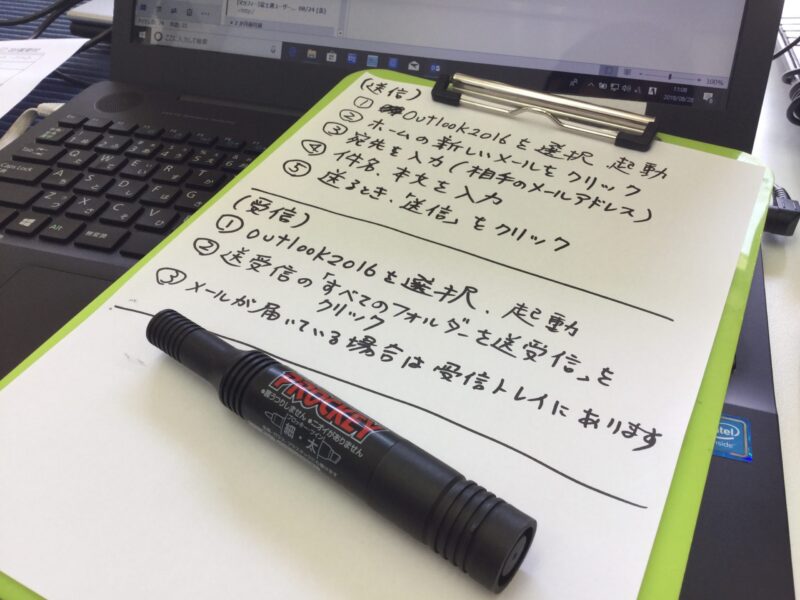 ここに入力して検索
100%
11:08
2018/08/28
(送信)
① Outlook2016を選択 起動
② ホームの新しいメールをクリック
③ 宛先を入力(相手のメールアドレス)
④ 件名、本文を入力
⑤ 送るとき、送信」をクリック
(受信)
① Outlook2016を選択、起動
② 送受信の「すべてのフォルダーを送受信」を
クリック
③ メールが届いている場合は受信トレイにあります
PROCKEY
●裏うつりしません ●ニオイがありません
細・太
Caps Lock
Alt
無変換
intel
inside